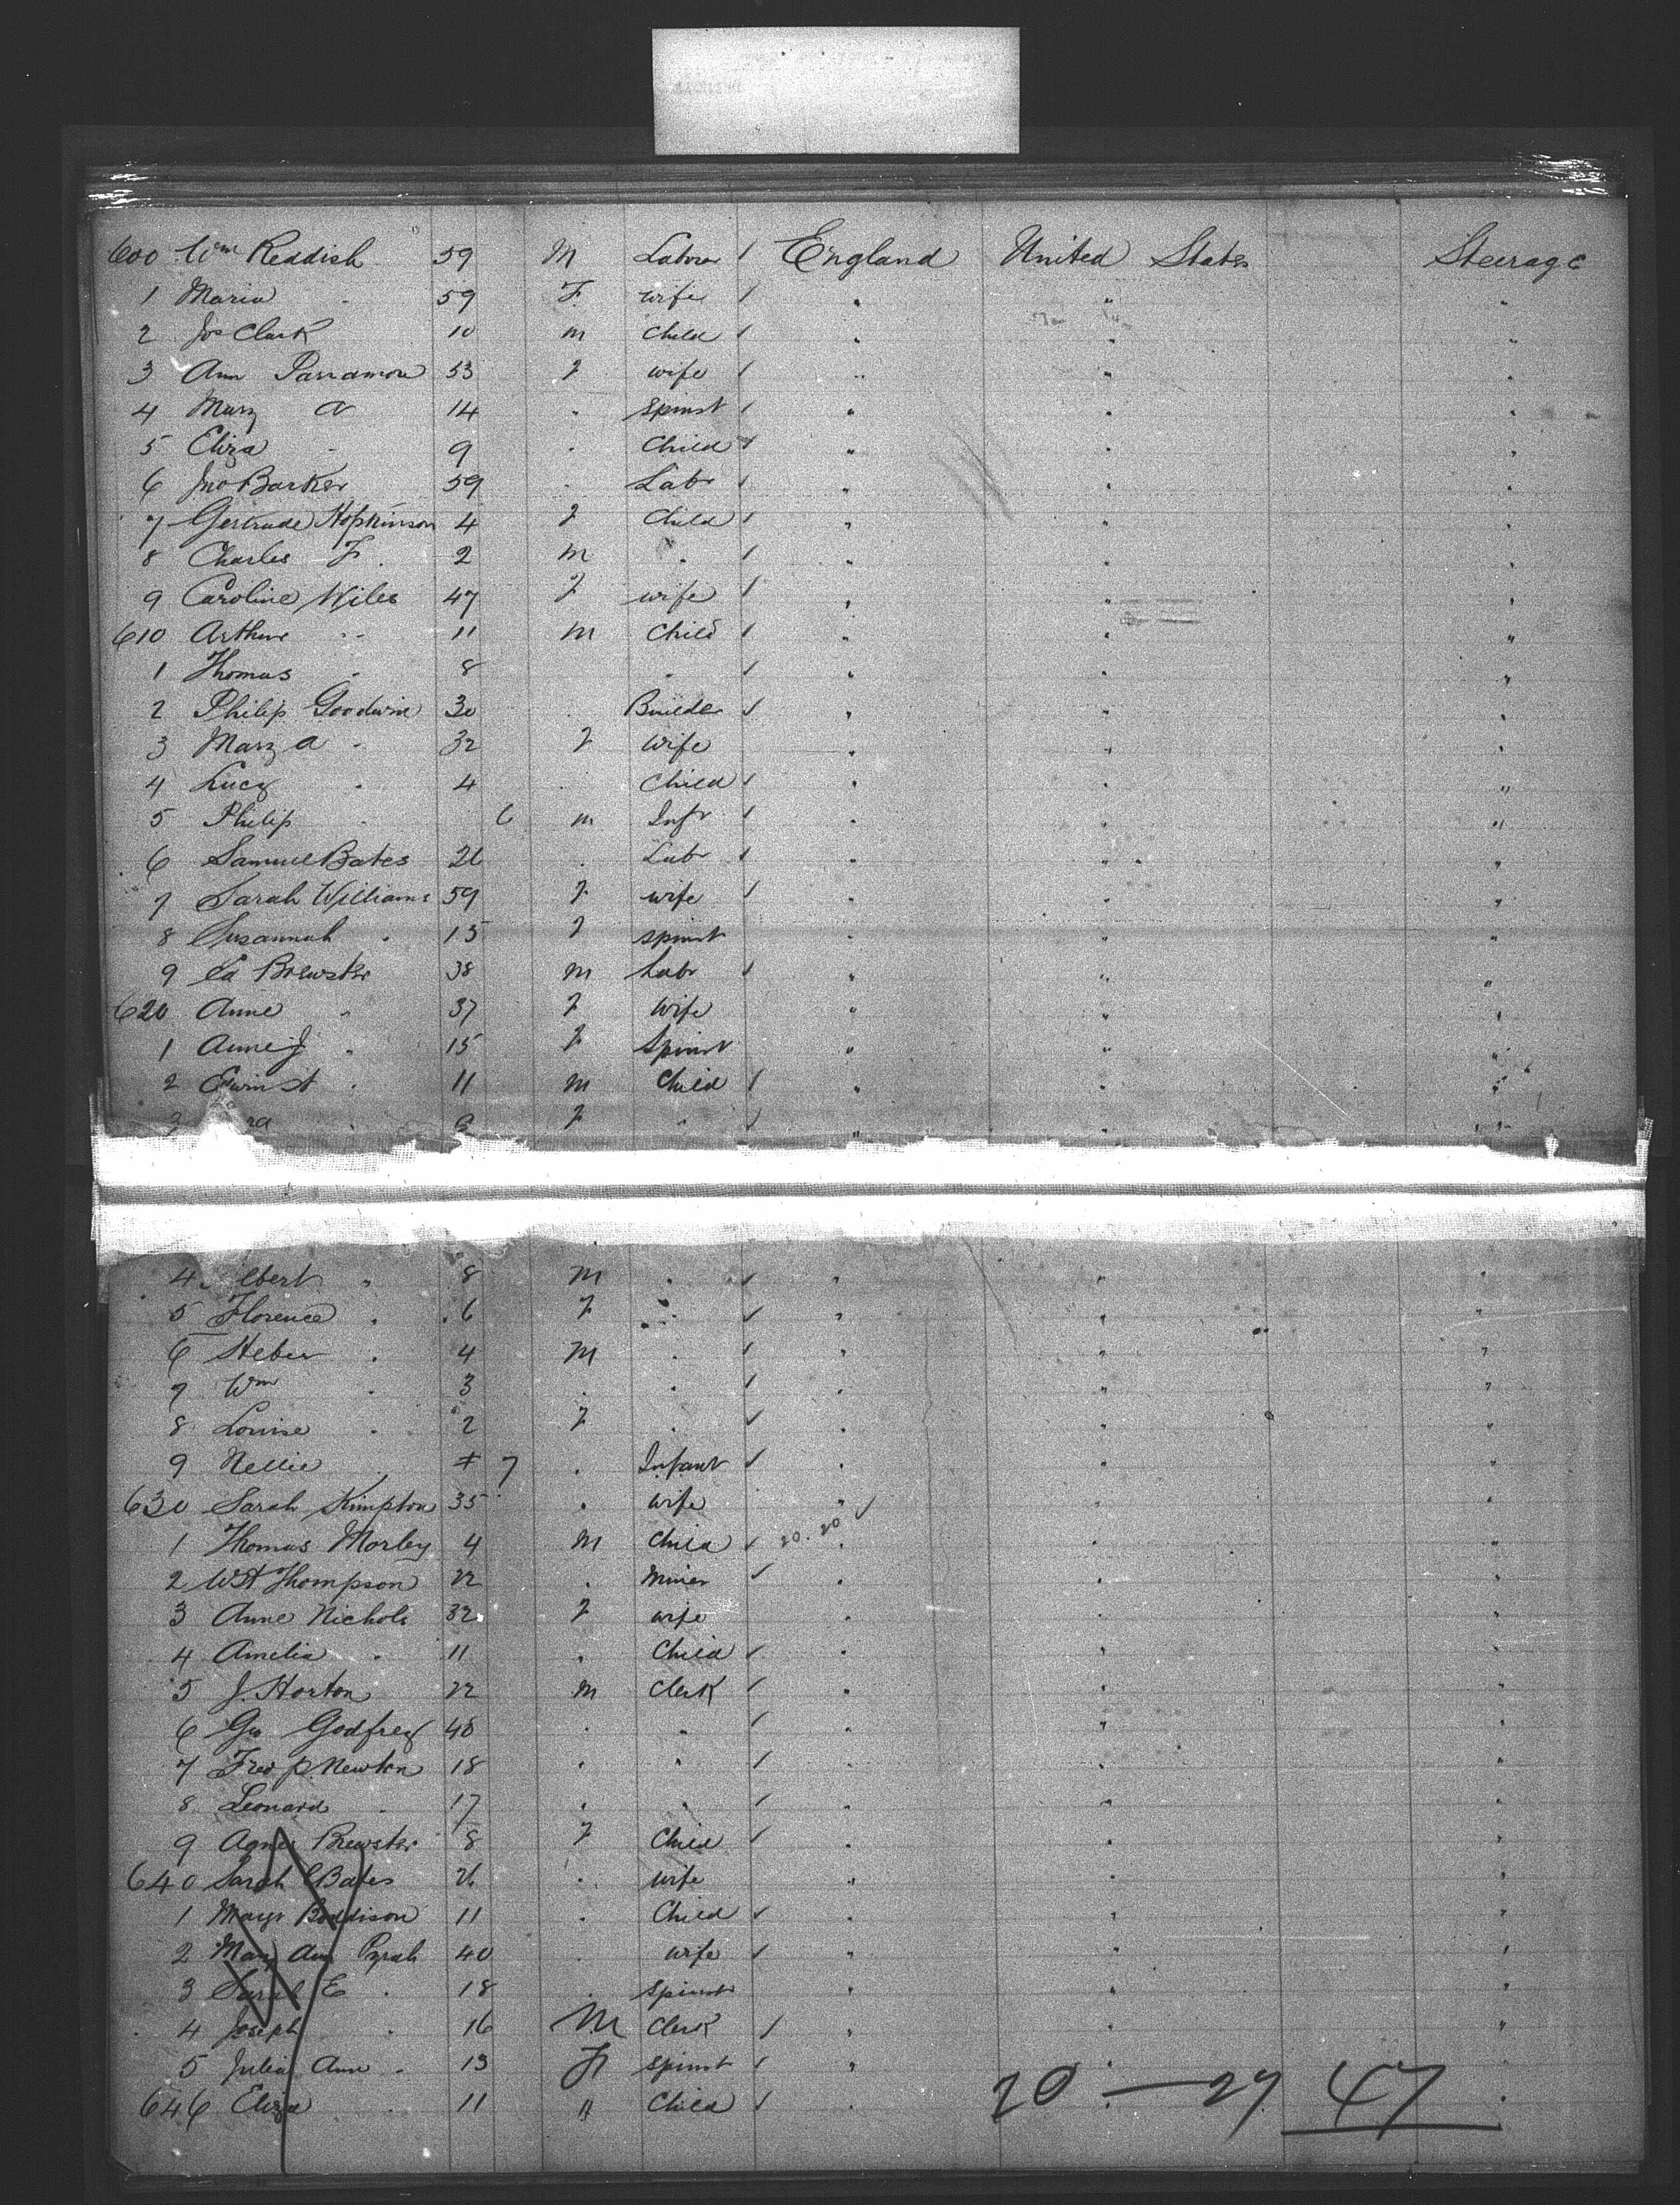 600 Wm Reddish 59 M Laborer / England United States Steerage
1 Maria " 59 F. wife / " " "
2 Jos Clark 10 m Child / " " "
3 Ann Parramore 53 F wife / " " "
4 Mary A 14 " Spinst / " " "
5 Eliza " 9 " Child / " " "
6 Jno Barker 59 " Labr / " " "
7 Gertrude Hopkinson 4 F Child / " " "
8 Charles F. 2 M " / " " "
9 Caroline Wiles 47 F wife / " " "
610 Arthur " 11 M Child / " " "
1 Thomas " 8 " / " " "
2 Philip Goodwin 30 Builder / " " "
3 Mary A " 32 F Wife " " "
4 Lucy " 4 Child / " " "
5 Philip 6 m Inft / " " "
6 Samuel Bates 26 " Labr / " " "
7 Sarah Williams 59 F wife / " " "
8 Susannah " 15 F spinst " " "
9 Ed Brewster 38 M Labr / " " "
620 Anne " 37 F Wife " " "
1 Anne J " 15 F Spinst " " "
2 " 11 M Child / " " "
3 ra " F " / " " "
4 lbert " 8 M " / " " "
5 Florence " 6 F " / " " "
6 Heber " 4 M " / " " "
7 Wm " 3 " " / " " "
8 Louise " 2 F " / " " "
9 Nellie 7 " Infant / " " "
630 Sarah Kimpton 35 " wife " / " "
1 Thomas Morley 4 M Child / 20. 20 " " "
2 WH Thompson 22 " Miner / " " "
3 Anne Nichols 32 F wife " " "
4 Amelia " 11 " Child / " " "
5 J. Horton 22 M Clerk / " " "
6 Geo Godfrey 48 " " / " " "
7 Fred P. Newton 18 " " / " " "
8 Leonard " 17 " " / " " "
9 Agnes Brewster 8 F Child / " " "
640 Sarah Bates 26 " wife " " "
1 Mary Boddison 11 " Child / " " "
2 Mary Ann Pyrah 40 " wife / " " "
3 Sarah E " 18 " Spinst " " "
4 Joseph " 16 M Clerk / " " "
5 Julia Ann " 13 F spinst / " " "
646 Eliza " 11 " Child / " 20 — 27 47 "